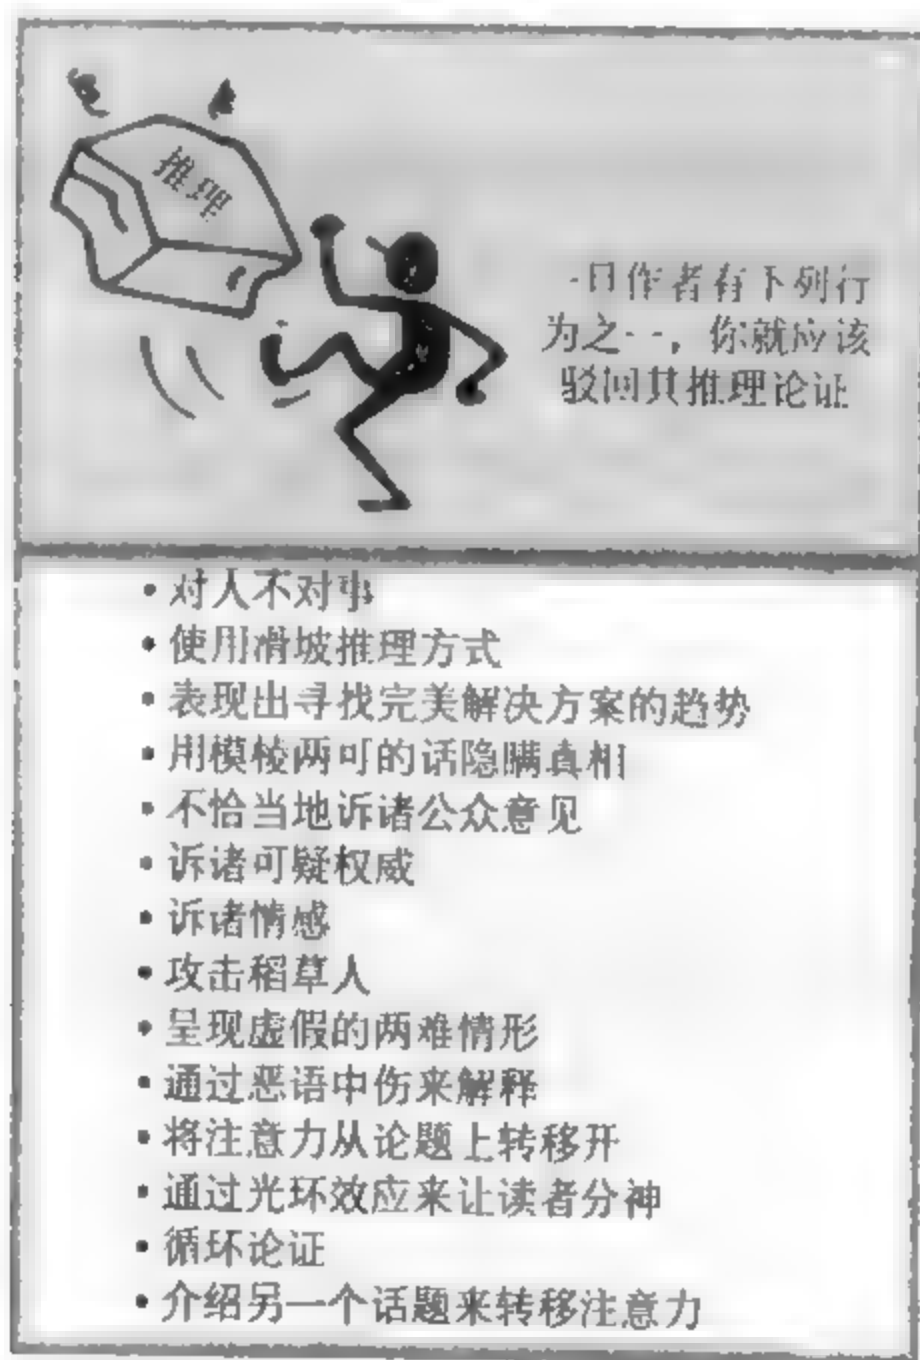 推理
一旦作者有下列行
为之一，你就应该
驳回其推理论证
• 对人不对事
• 使用滑坡推理方式
• 表现出寻找完美解决方案的趋势
• 用模棱两可的话隐瞒真相
• 不恰当地诉诸公众意见
• 诉诸可疑权威
• 诉诸情感
• 攻击稻草人
• 呈现虚假的两难情形
• 通过恶语中伤来解释
• 将注意力从论题上转移开
• 通过光环效应来让读者分神
• 循环论证
• 介绍另一个话题来转移注意力